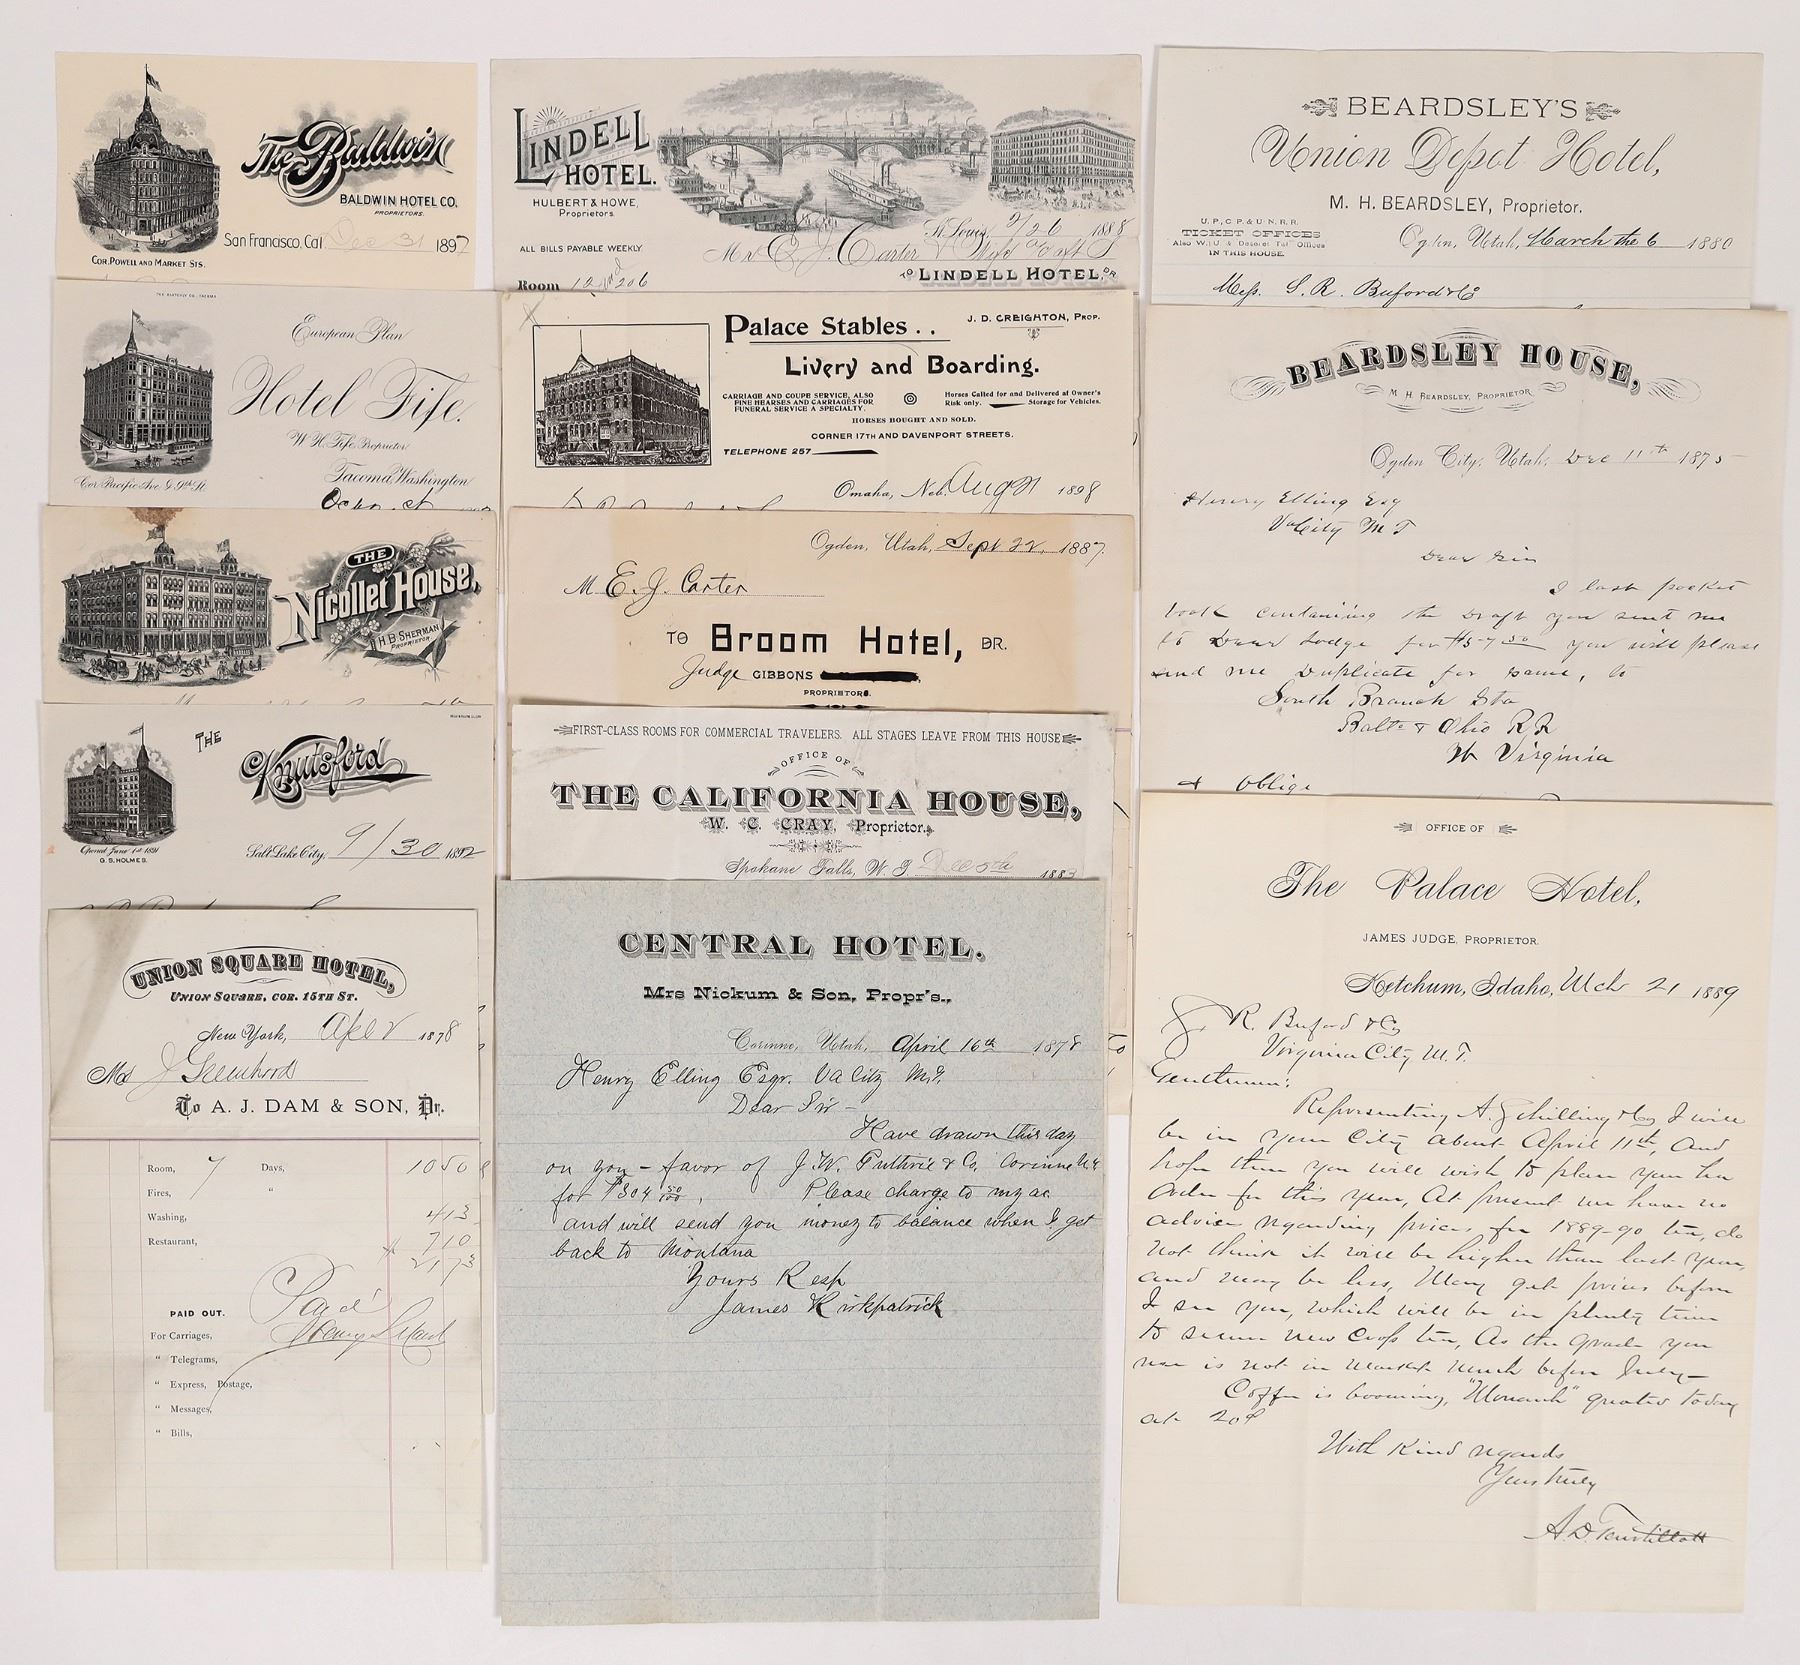 The Baldwin
BALDWIN HOTEL CO.
PROPRIETORS.
San Francisco, Cal. Dec 31 1897
COR. POWELL AND MARKET STS.
European Plan
Hotel Fife.
W. H. Fife Proprietor
Tacoma, Washington
Cor Pacific Ave & 9th St.
THE
Nicollet House,
H. B. SHERMAN
PROPRIETOR
THE
Knutsford
Opened June 1st 1891
G. S. HOLMES.
Salt Lake City, 9/30 1892
UNION SQUARE HOTEL,
UNION SQUARE, COR. 15TH ST.
New York, Apl 2 1878
To A. J. DAM & SON, Dr.
Room, 7 Days, 10 50
Fires, "
Washing, 4 13
Restaurant, 7 10
21 73
Paid
PAID OUT.
For Carriages,
" Telegrams,
" Express, Postage,
" Messages,
" Bills,
LINDELL
HOTEL.
HULBERT & HOWE,
Proprietors.
ALL BILLS PAYABLE WEEKLY.
St. Louis, 9/26 1888
M E. J. Carter & Wife
TO LINDELL HOTEL, DR.
Room 12 206
Palace Stables . .
J. D. CREIGHTON, PROP.
Livery and Boarding.
CARRIAGE AND COUPE SERVICE, ALSO
FINE HEARSES AND CARRIAGES FOR
FUNERAL SERVICE A SPECIALTY.
Horses Called for and Delivered at Owner's
Risk only. Storage for Vehicles.
HORSES BOUGHT AND SOLD.
CORNER 17TH AND DAVENPORT STREETS.
TELEPHONE 257
Omaha, Neb. Aug 21 1898
Ogden, Utah, Sept 22, 1887.
M E. J. Carter
TO Broom Hotel, DR.
Judge GIBBONS
PROPRIETORS.
FIRST-CLASS ROOMS FOR COMMERCIAL TRAVELERS. ALL STAGES LEAVE FROM THIS HOUSE
OFFICE OF
THE CALIFORNIA HOUSE,
W. C. GRAY, Proprietor.
Spokane Falls, W. T. Dec 5th 1883
CENTRAL HOTEL.
Mrs Nickum & Son, Propr's.,
Corinne, Utah, April 16th 1878
Henry Elling Esqr. Va City M.T.
Dear Sir -
Have drawn this day
on you - favor of J. W. Guthrie & Co, Corinne U.T.
for $304 50/100, Please charge to my ac
and will send you money to balance when I get
back to Montana
Yours Resp
James Kirkpatrick
BEARDSLEY'S
Union Depot Hotel,
M. H. BEARDSLEY, Proprietor.
U.P., C.P. & U.N.R.R.
TICKET OFFICES
Also W.U. & Deseret Tel. Offices
IN THIS HOUSE.
Ogden, Utah, March the 6 1880
Mess. S. R. Buford & Co
BEARDSLEY HOUSE,
M. H. BEARDSLEY, PROPRIETOR.
Ogden City, Utah, Dec 11th 1875
Henry Elling Esq
Va City M T
Dear Sir
I lost pocket
book containing the Draft you sent me
to Deer Lodge for $57.50 you will please
send me Duplicate for same, to
South Branch Sta
Balto & Ohio R.R
W Virginia
& oblige
OFFICE OF
The Palace Hotel,
JAMES JUDGE, PROPRIETOR.
Ketchum, Idaho, Mch 21 1889
S. R. Buford & Co
Virginia City M. T.
Gentlemen;
Representing A. Schilling & Co I will
be in your City about April 11th, and
hope then you will wish to place your tea
order for this year, At present we have no
advice regarding prices for 1889-90 tea, do
not think it will be higher than last year,
and may be less, May get prices before
I see you, which will be in plenty time
to secure new crop tea, As the grade you
use is not in market much before July -
Coffee is booming, "Monarch" quoted today
at 20¢
With Kind regards
Yours truly